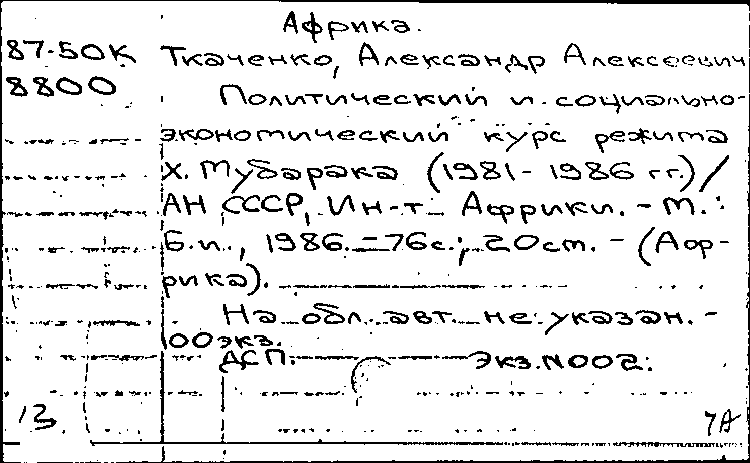 Африка.
87-50К Ткаченко, Александр Алексеевич
8800 Политический и социально-
экономический курс режима
Х. Мубарака (1981-1986 гг.)/
АН СССР, Ин-т Африки. - М.:
Б.и., 1986. - 76с.; 20см. - (Аф-
рика).
На обл. авт. не указан. -
100экз.
ДСП. Экз.N002.
13 7А